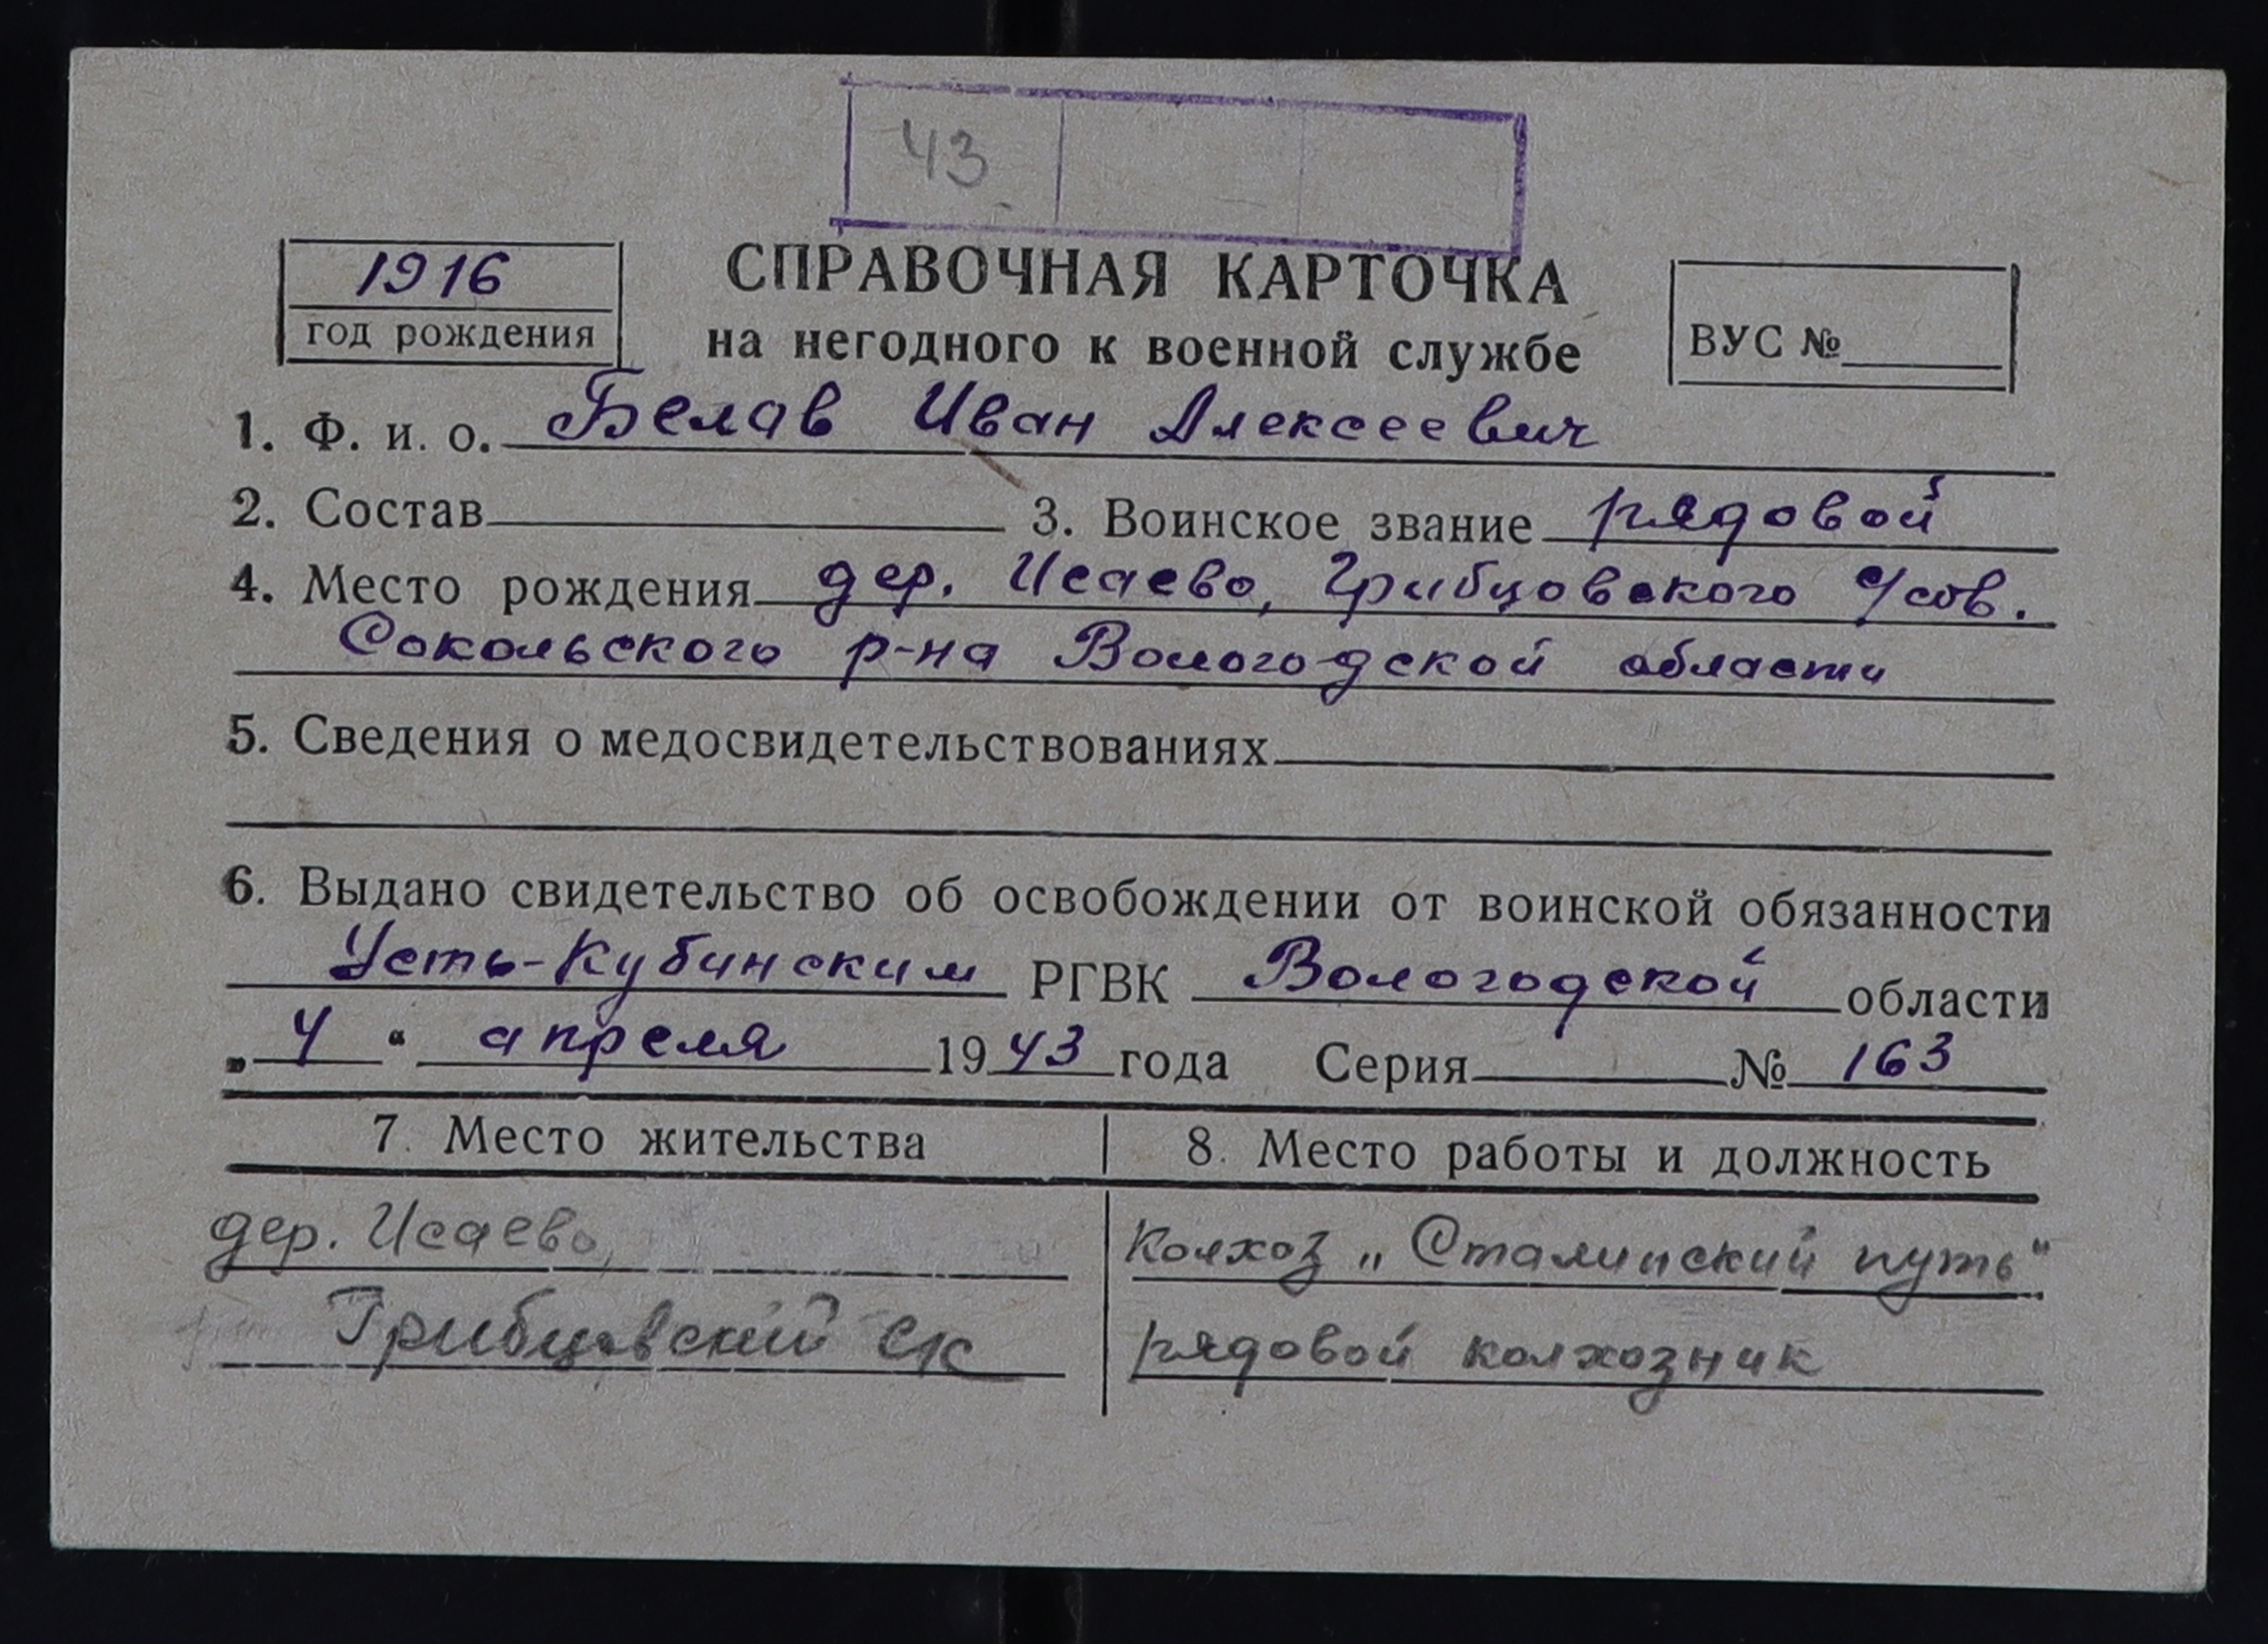 43
1916
год рождения
СПРАВОЧНАЯ КАРТОЧКА
на негодного к военной службе
ВУС №
1. Ф. и. о. Белов Иван Алексеевич
2. Состав 3. Воинское звание рядовой
4. Место рождения дер. Исаево, Грибцовского с/сов.
Сокольского р-на Вологодской области
5. Сведения о медосвидетельствованиях
6. Выдано свидетельство об освобождении от воинской обязанности
Усть-Кубинским РГВК Вологодской области
„4“ апреля 1943 года Серия № 163
7. Место жительства 8. Место работы и должность
дер. Исаево, Колхоз „Сталинский путь“
Грибцовский рядовой колхозник